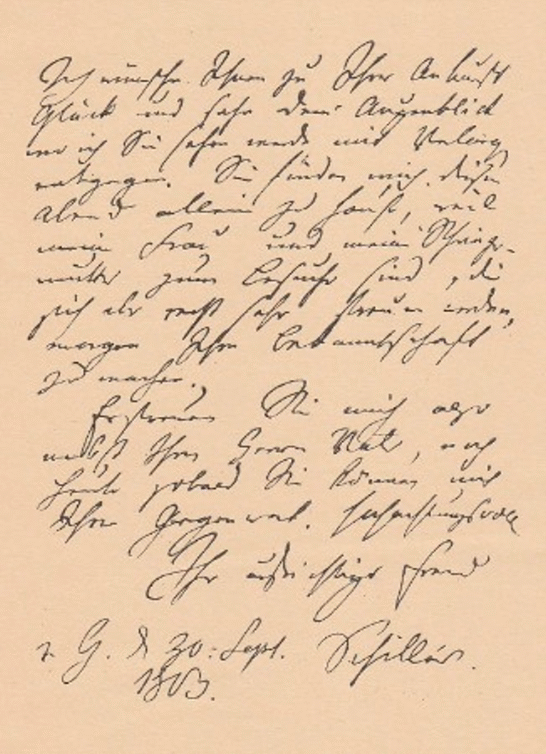 Ich wünsche Ihnen zu Ihrer Ankunft
Glück und sehe dem Augenblick
wo ich Sie sehen werde mit Verlang
entgegen. Sie finden mich diesen
Abend allein zu Hause, weil
meine Frau und meine Schwieger-
mutter zum Besuche sind, die
sich aber recht sehr freuen werden,
morgen Ihre Bekanntschaft
zu machen.
Erfreuen Sie mich also
nebst Ihrem Herrn, noch
heute sobald Sie können mit
Ihrer Gegenwart. Hochachtungsvoll
Ihr aufrichtiger Freund
30. Sept. Schiller.
1803.